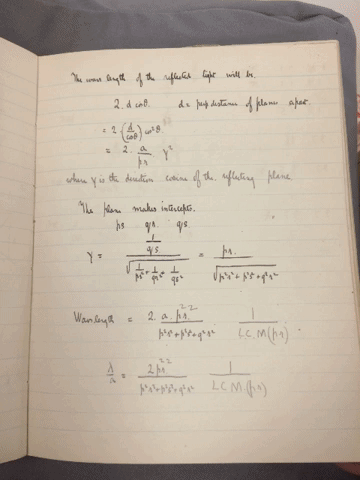 The wave length of the reflected light will be.
2. d cosθ. d = perp distance of planes apart
= 2 (d/cosθ) cos²θ
= 2. a/pr γ²
where γ is the direction cosine of the reflecting plane
The plane makes intercepts.
ps qr qs
γ = (1/qs)/√(1/ps² + 1/qr² + 1/qs²) = pr./√(p²r²+p²s²+q²s²)
Wavelength = 2.a.pr/(p²r²+p²s²+q²s²) 1/LC.M(pr)
λ/a = 2pr/(p²r²+p²s²+q²s²) 1/LC M.(pr)